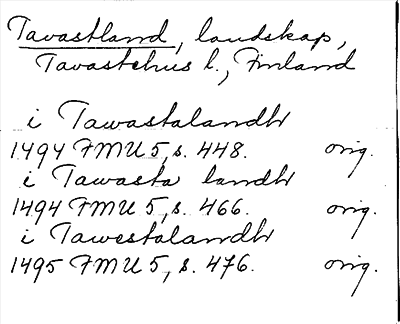 Tavastland, landskap,
Tavastehus l., Finland
i Tawastalandh
1494 FMU 5, s. 448. orig.
i Tawasta landh
1494 FMU 5, s. 466. orig.
i Tawestalandh
1495 FMU 5, s. 476. orig.